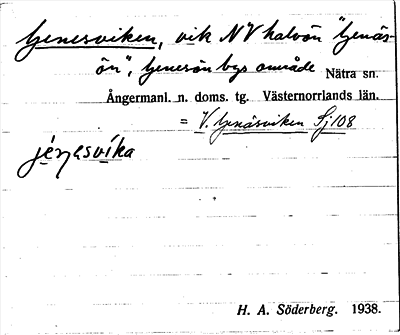 Genesviken, vik NV halvön "Genäs-
ön", Genesön bys område Nätra sn.
Ångermanl. n. doms. tg. Västernorrlands län.
= V. Genäsviken Sj 108
H. A. Söderberg. 1938.